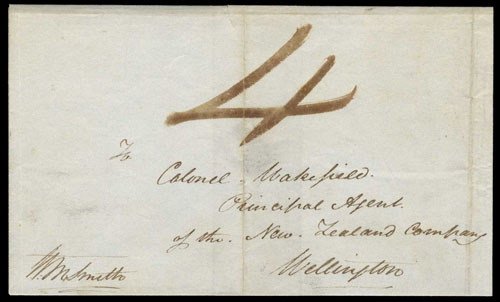 4
To
Colonel Wakefield.
Principal Agent.
of the New Zealand Company
Wellington
Wm Smith